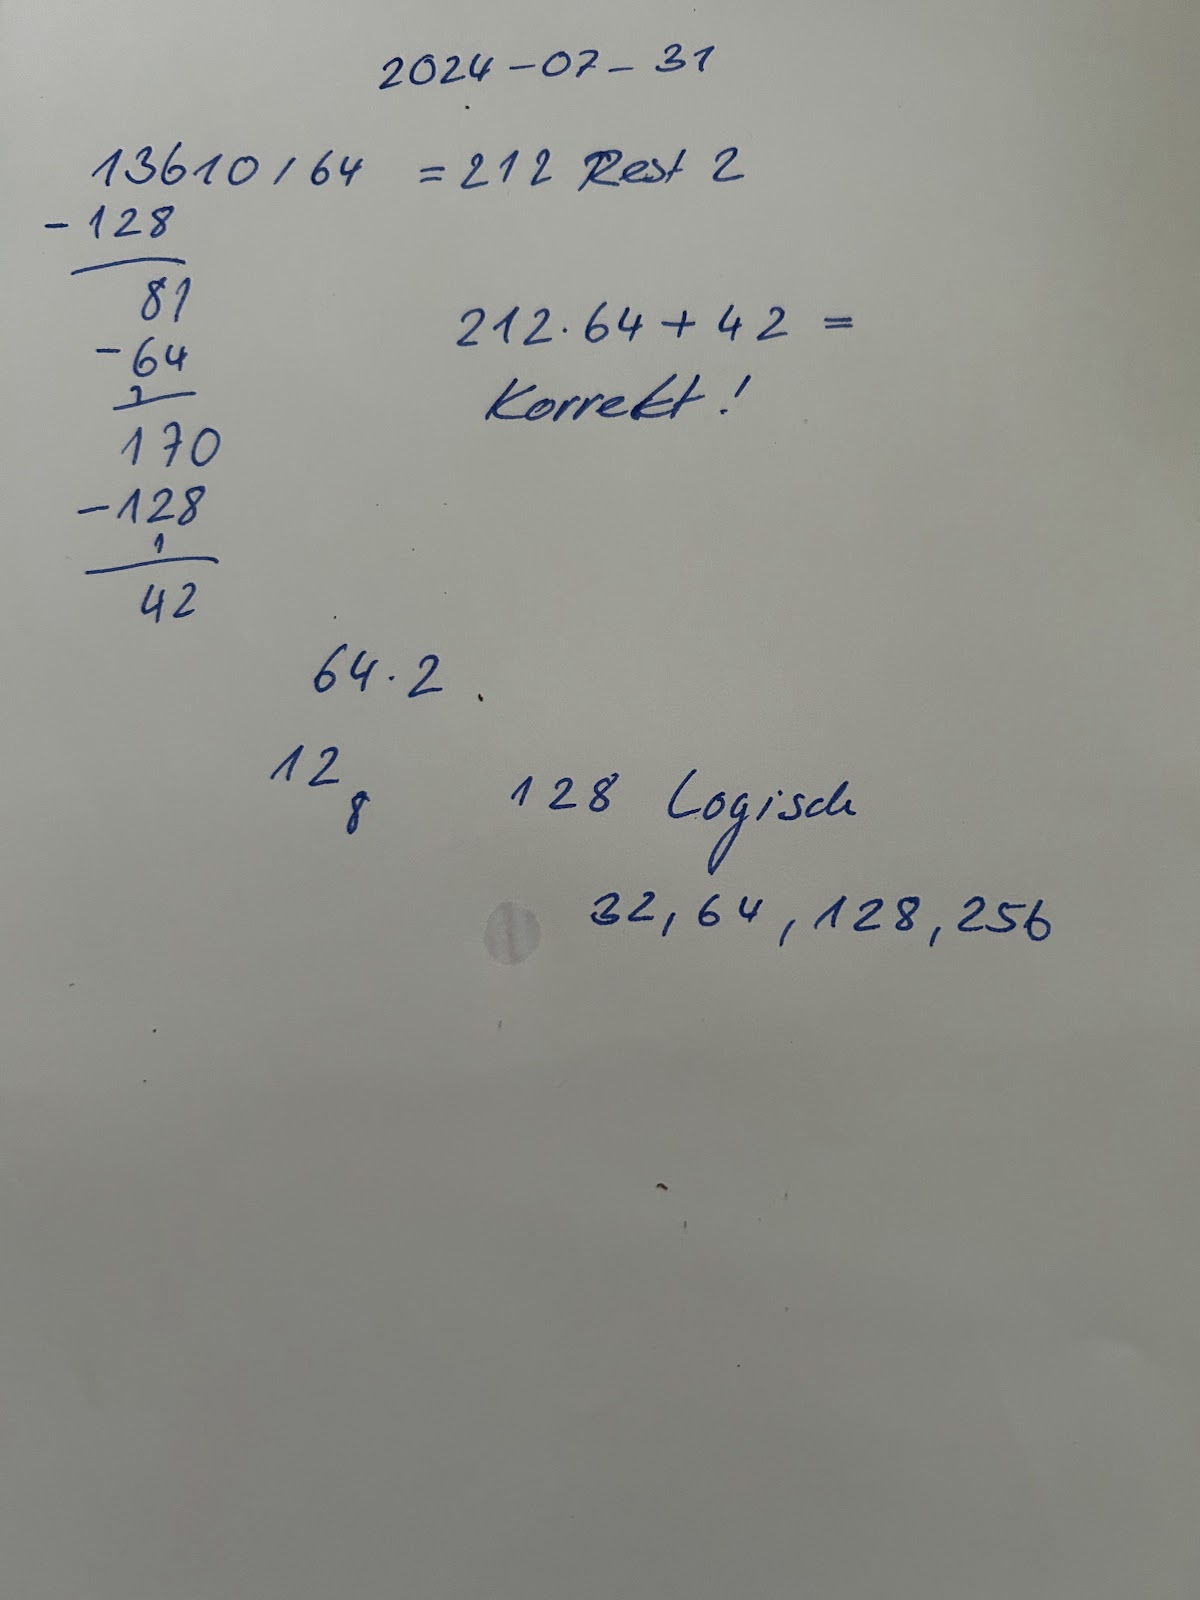 2024-07-31
13610/64 = 212 Rest 2
-128
81
-64
2
170
-128
1
42
212·64+42 =
Korrekt!
64·2
12
8
128 Logisch
32, 64, 128, 256